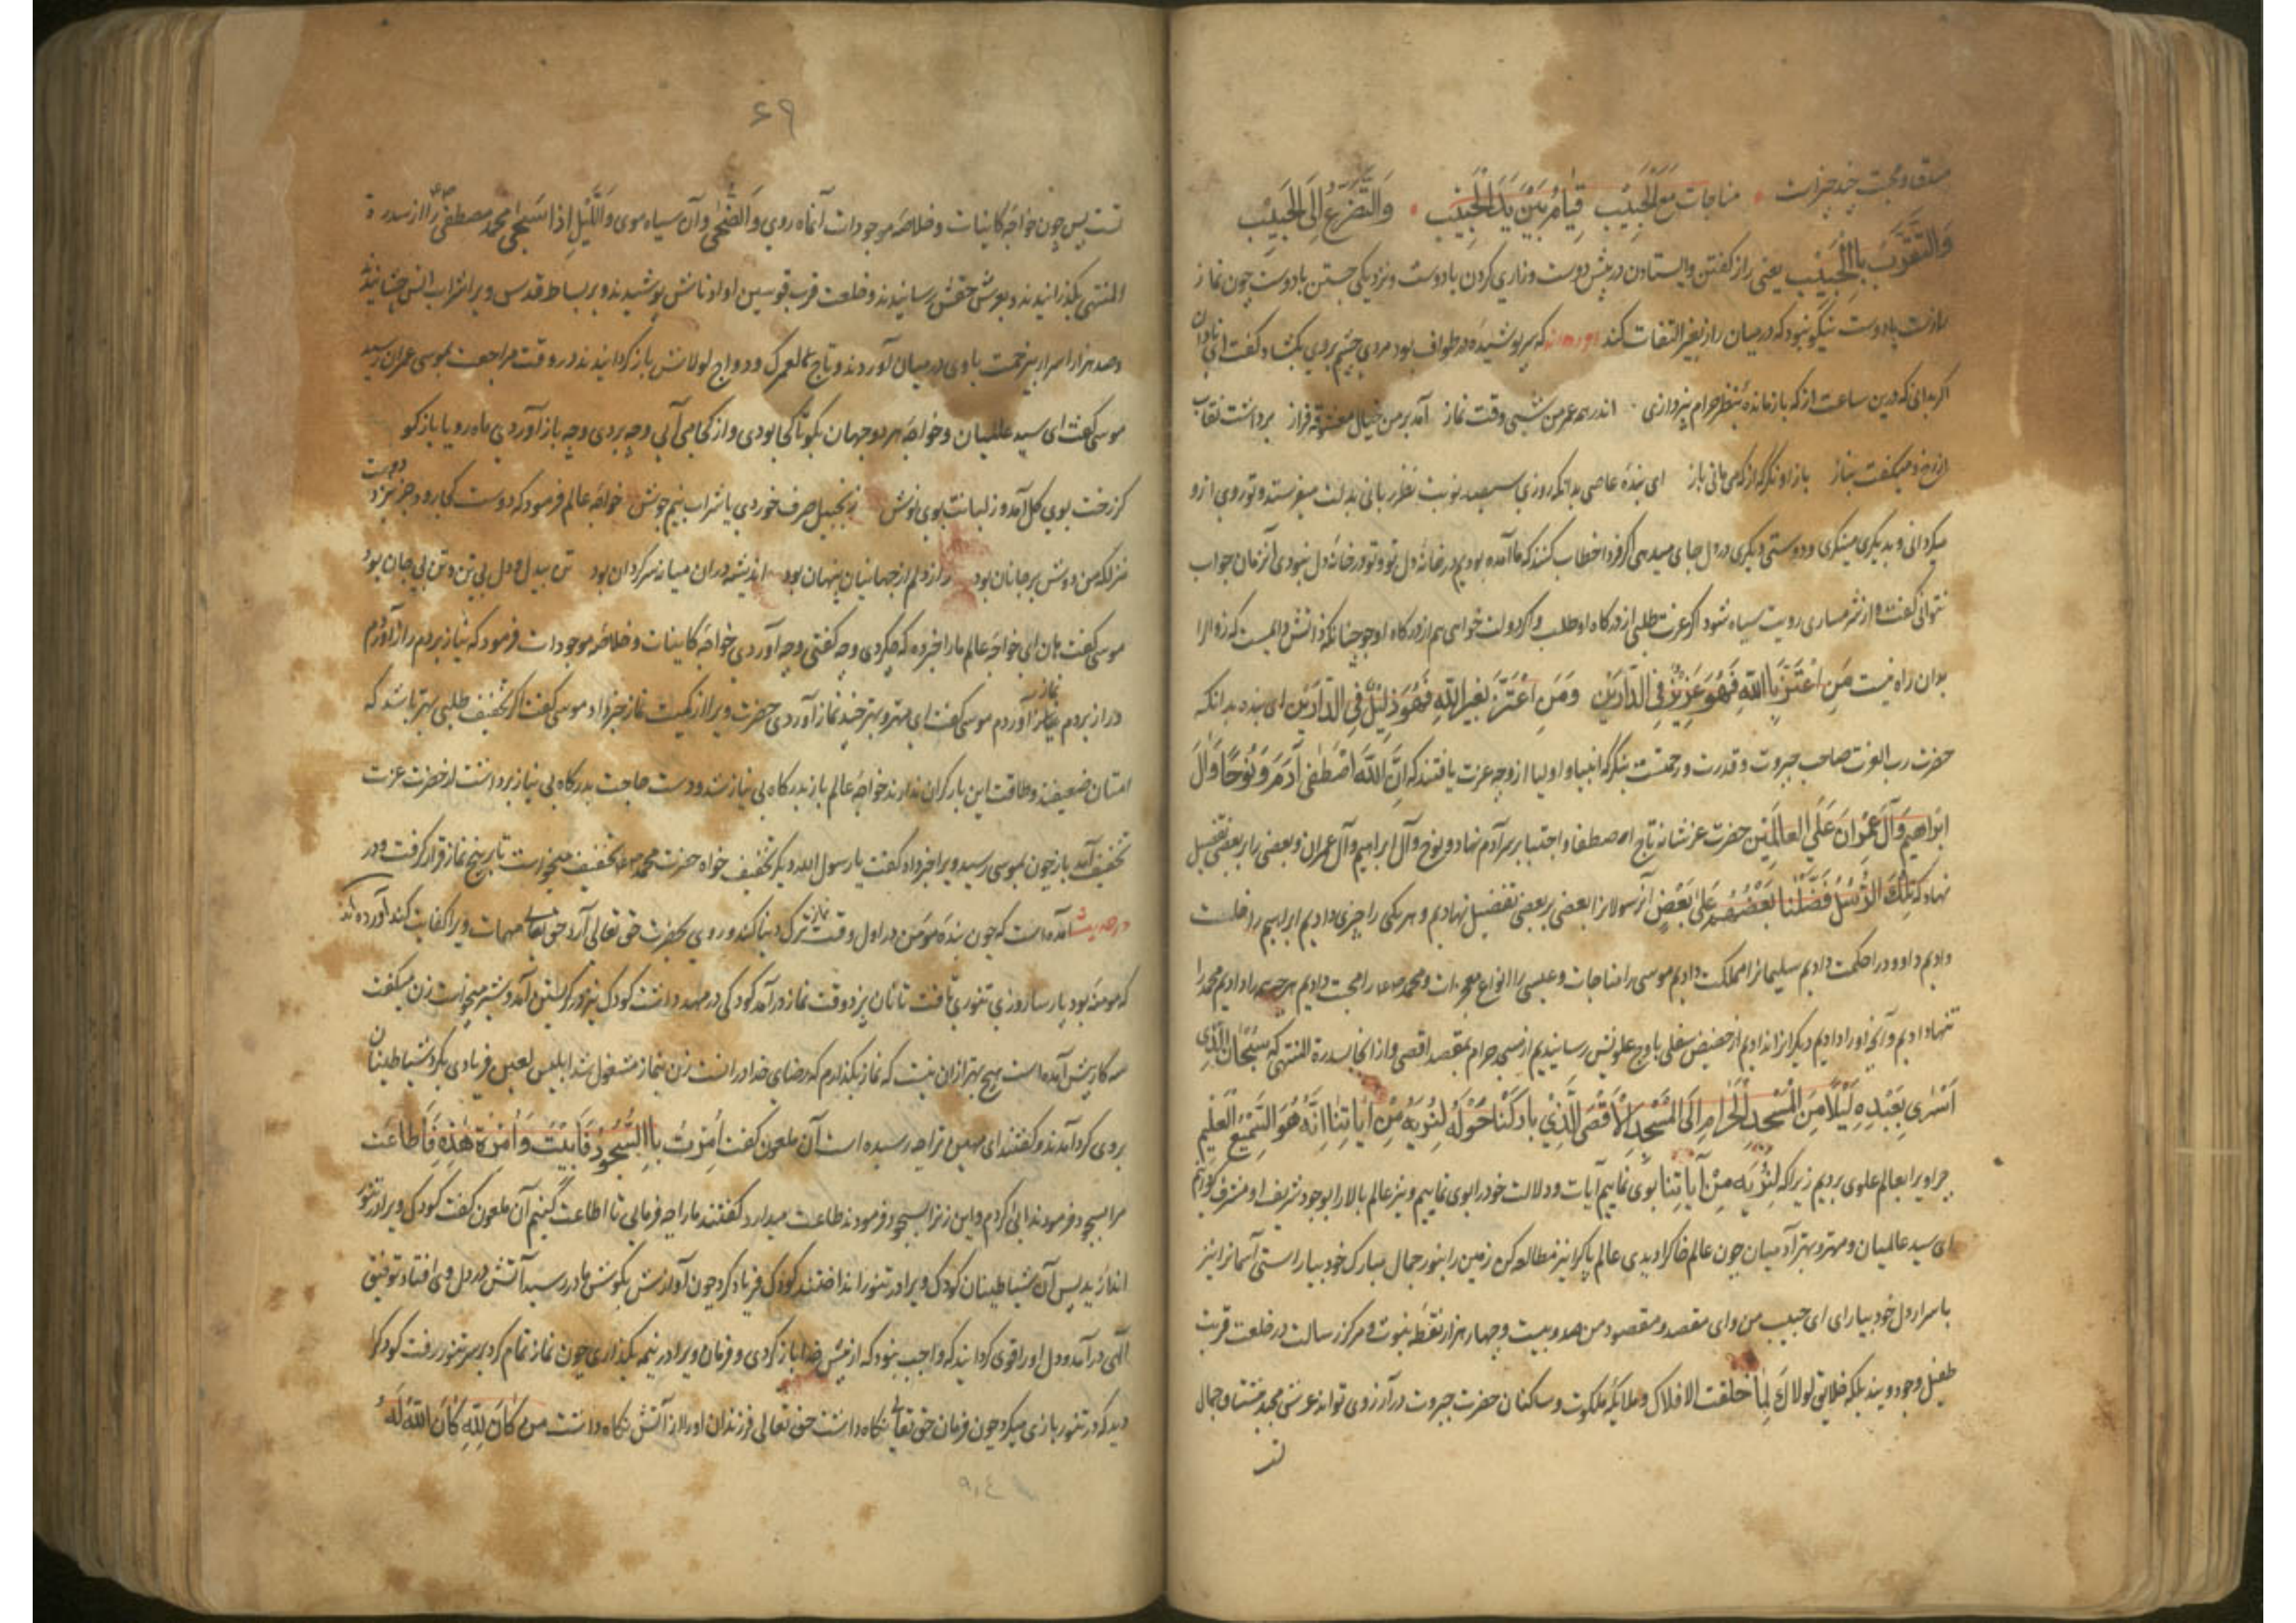 صدق و محبت چند چیز است مناجات مع الحبیب قیام بین یدی الحبیب والتضرع الی الحبیب
والتقرب بالحبیب یعنی راز کفتن و ایستادن در پیش دوست و زاری کردن با دوست و نزدیکی جستن با دوست چون نماز
با دوست نیکو نبود که در میان راز بغیر التفات کند که سر پوشیده در طواف بود مردی چشم بروی بکشاد کفت ای نادان
اکر بدانی که درین ساعت از که باز مانده بنظر حرام نپردازی اندر همه عمر من شبی وقت نماز آمد بر من خیال معشوقه فراز برداشت نقاب
از رخ و میکفت بناز باز او نکر که از که می مانی باز ای بنده عاصی بدانکه روزی سیصد نوبت نظر ربانی بدلت میفرستد و تو روی ازو
میکردانی و بدیکری مینکری و دوستی دیکری در دل جای میدهی اکر فردا خطاب کنند که ما آمده بودیم در خانه دل تو و تو در خانه دل نبودی آنزمان جواب
نتوانی کفت و از شرمساری رویت سیاه شود اکر عزت طلبی از درکاه او طلب و اکر دولت خواهی هم از درکاه او جو چنانکه ذاتش دایمست که زوال را
بدان راه نیست من اعتز باالله فهو عزیز فی الدارین ومن اعتز بغیر الله فهو ذلیل فی الدارین ای بنده بدانکه
حضرت رب العزت صاحب جبروت و قدرت و رحمتست بنکر که انبیا و اولیا از وجه عزت یافتند که ان الله اصطفی آدم ونوحا وآل
ابراهیم وآل عمران علی العالمین حضرت عز شانه تاج اصطفا و اجتبا بر سر آدم نهاد و نوح و آل ابراهیم و آل عمران و بعضی را بر بعضی تفضیل
نهاد که تلک الرسل فضلنا بعضهم علی بعض آن رسولانرا بعضی بر بعضی تفضیل نهادیم و هر یکی را چیزی دادیم ابراهیم را خلت
دادیم داوود را حکمت دادیم سلیمانرا مملکت دادیم موسی را مناجات و عیسی را انواع معجزات و محمد را محبت دادیم هر چه همه را دادیم محمد را
تنها دادیم و آنچ اورا دادیم دیکرانرا ندادیم از حضیض سفلی باوج علویش رسانیدیم از مسجد حرام بمقصد اقصی و از انجا بسدرة المنتهی که سبحان الذی
اسری بعبده لیلا من المسجد الحرام الی المسجد الاقصی الذی بارکنا حوله لنریه من آیاتنا انه هو السمیع العلیم
چرا ویرا بعالم علوی بردیم زیرا که لنریه من آیاتنا بوی نماییم آیات و دلالت خود را بوی نماییم و نیز عالم بالا را بوجود شریف او مشرف کردانیم
ای سید عالمیان و مهتر و بهتر آدمیان چون عالم خاکرا دیدی عالم پاکرا نیز مطالعه کن زمین را بنور جمال مبارک خود بیاراستی آسمانرا نیز
باسرار دل خود بیارای ای حبیب من و ای مقصد و مقصود من صد و بیست و چهار هزار نقطه نبوت و مرکز رسالت در خلعت قربت
طفیل وجود ویند بلکه خلایق لولاک لما خلقت الافلاک و ملایکه ملکوت و ساکنان حضرت جبروت در آرزوی تواند عرش مجید مشتاق جمال
۶۹
تست پس چون خواجه کاینات و خلاصه موجودات آنماه روی والضحی و آن سیاه موی واللیل اذا سجی محمد مصطفی را از سدرة
المنتهی بکذرانیدند و بعرش حقش رسانیدند و خلعت قرب قوسین او ادناش پوشیدند و بر بساط قدس ویرا شراب انس چشانیدند
و صد هزار اسرار بیزحمت با وی در میان آوردند و تاج لعمرک و دواج لولاش باز کردانیدند در وقت مراجعت بموسی عمران رسید
موسی کفت ای سید عالمیان و خواجه هر دو جهان بکو تا کجا بودی و از کجا می آیی و چه بردی و چه باز آوردی ماه رویا باز کو
کز رخت بوی کل آمد وز لبانت بوی نوش زنجبیل صرف خوردی یا شراب نیم جوش خواجه عالم فرمود که دوست کجا رود جز نزد دوست
منزلکه من دوش بر جانان بود راز دلم از جهانیان پنهان بود اندیشه دران میانه سرکردان بود تن بیدل و دل بی تن و تن بی جان بود
موسی کفت هان ای خواجه عالم مارا خبر ده که چکردی و چه کفتی و چه آوردی خواجه کاینات و خلاصه موجودات فرمود که نیاز بردم راز آوردم
دراز بردم نماز آوردم موسی کفت ای مهتر و بهتر چند نماز آوردی حضرت ویرا از کمیت نماز خبر داد موسی کفت اکر تخفیف طلبی بهتر باشد که
امتان ضعیفند و طاقت این بار کران ندارند خواجه عالم باز بدرکاه بی نیاز شد و دست حاجت بدرکاه بی نیاز برداشت از حضرت عزت
تخفیف آمد باز چون بموسی رسید و ویرا خبر داد کفت یا رسول الله دیکر تخفیف خواه حضرت محمد تخفیف میخواست تا بر پنج نماز قرار کرفت و در
در حدیث آمده است که چون بنده مومن در اول وقت نماز ترک دنیا کند و روی بحضرت حق تعالی آرد حق تعالی مهمات ویرا کفایت کند آورده اند
که مومنه بود پارسا روزی تنوری تافت تا نان پزد وقت نماز درآمد کودکی در مهد داشت کودک نیز در کریستن آمد و شیر میخواست زن میکفت
سه کار پیش آمده است هیچ بهتر ازان نیست که نماز بکذارم که رضای خدا در انست زن بنماز مشغول شد ابلیس لعین فریادی بکرد شیاطینان
بروی کرد آمدند و کفتند ای مهین ترا چه رسیده است آن ملعون کفت امرت باالسجود فابیت وامرة هذه فاطاعت
مرا بسجود فرمودند ابی کردم و این زنرا بسجود فرمودند طاعت میدارد کفتند مارا چه فرمایی تا اطاعت کنیم آن ملعون کفت کودک ویرا در تنور
اندازید پس آن شیاطینان کودک ویرا در تنور انداختند کودک فریاد کرد چون آوازش بکوش مادر رسید آتش در دل وی افتاد توفیق
الهی درآمد و دل اورا قوی کردانید که واجب نبود که از پیش خدا باز کردی و فرمان ویرا در نیمه بکذاری چون نماز تمام کرد بر سر تنور رفت کودکرا
دید که در تنور بازی میکرد چون فرمان حق تعالی نکاه داشت حق تعالی فرزندان اورا از آتش نکاه داشت من کان لله کان الله له